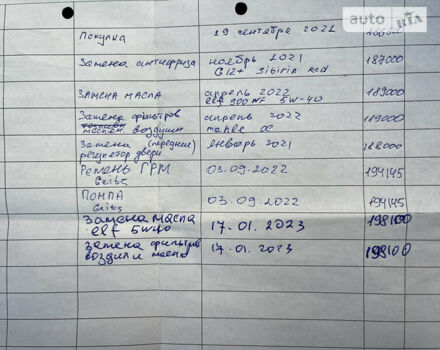 auto RIA
Покупка 19 сентября 2021
Замена антифриза ноябрь 2021 187000
G12+ Sibiria Red
ЗАМЕНА МАСЛА апрель 2022 189000
elf 900 NF 5W-40
Замена фильтров апрель 2022 189000
маслен воздушн mahle ос
Замена (передние) январь 2021 188000
регулятор двери
Ремень ГРМ 03.09.2022 194145
Gates
ПОМПА 03.09.2022 194145
Gates
Замена масла 17.01.2023 198100
elf 5W40
Замена фильтров 17.01.2023 198100